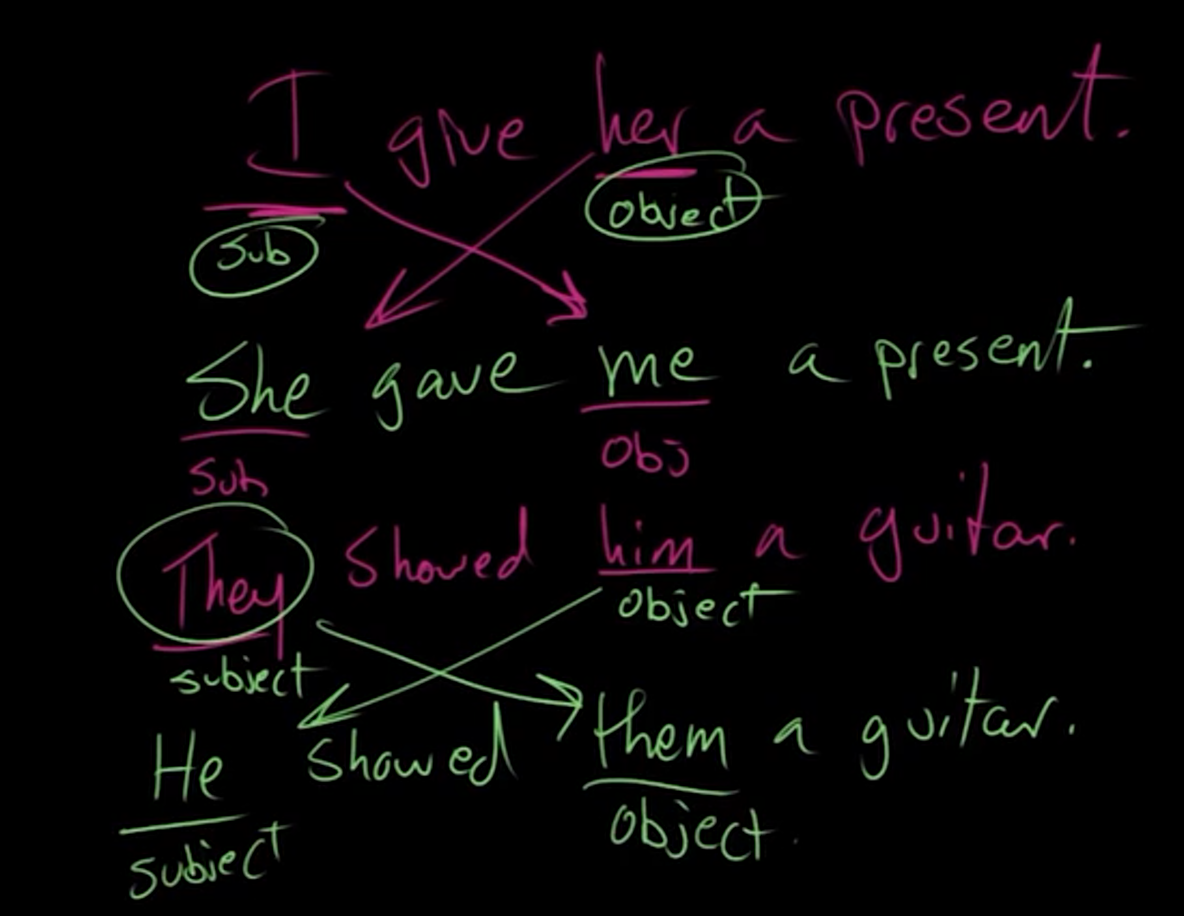 I give her a present.
Sub object
She gave me a present.
Sub Obj
They showed him a guitar.
subject object
He showed them a guitar.
subject object.